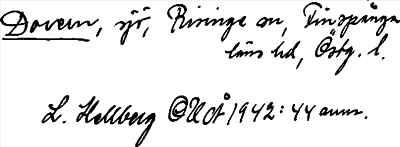 Dovern, sjö, Risinge sn, Finspånga
läns hd, Östg. l.
L. Hellberg OUÅ 1942: 44 anm.